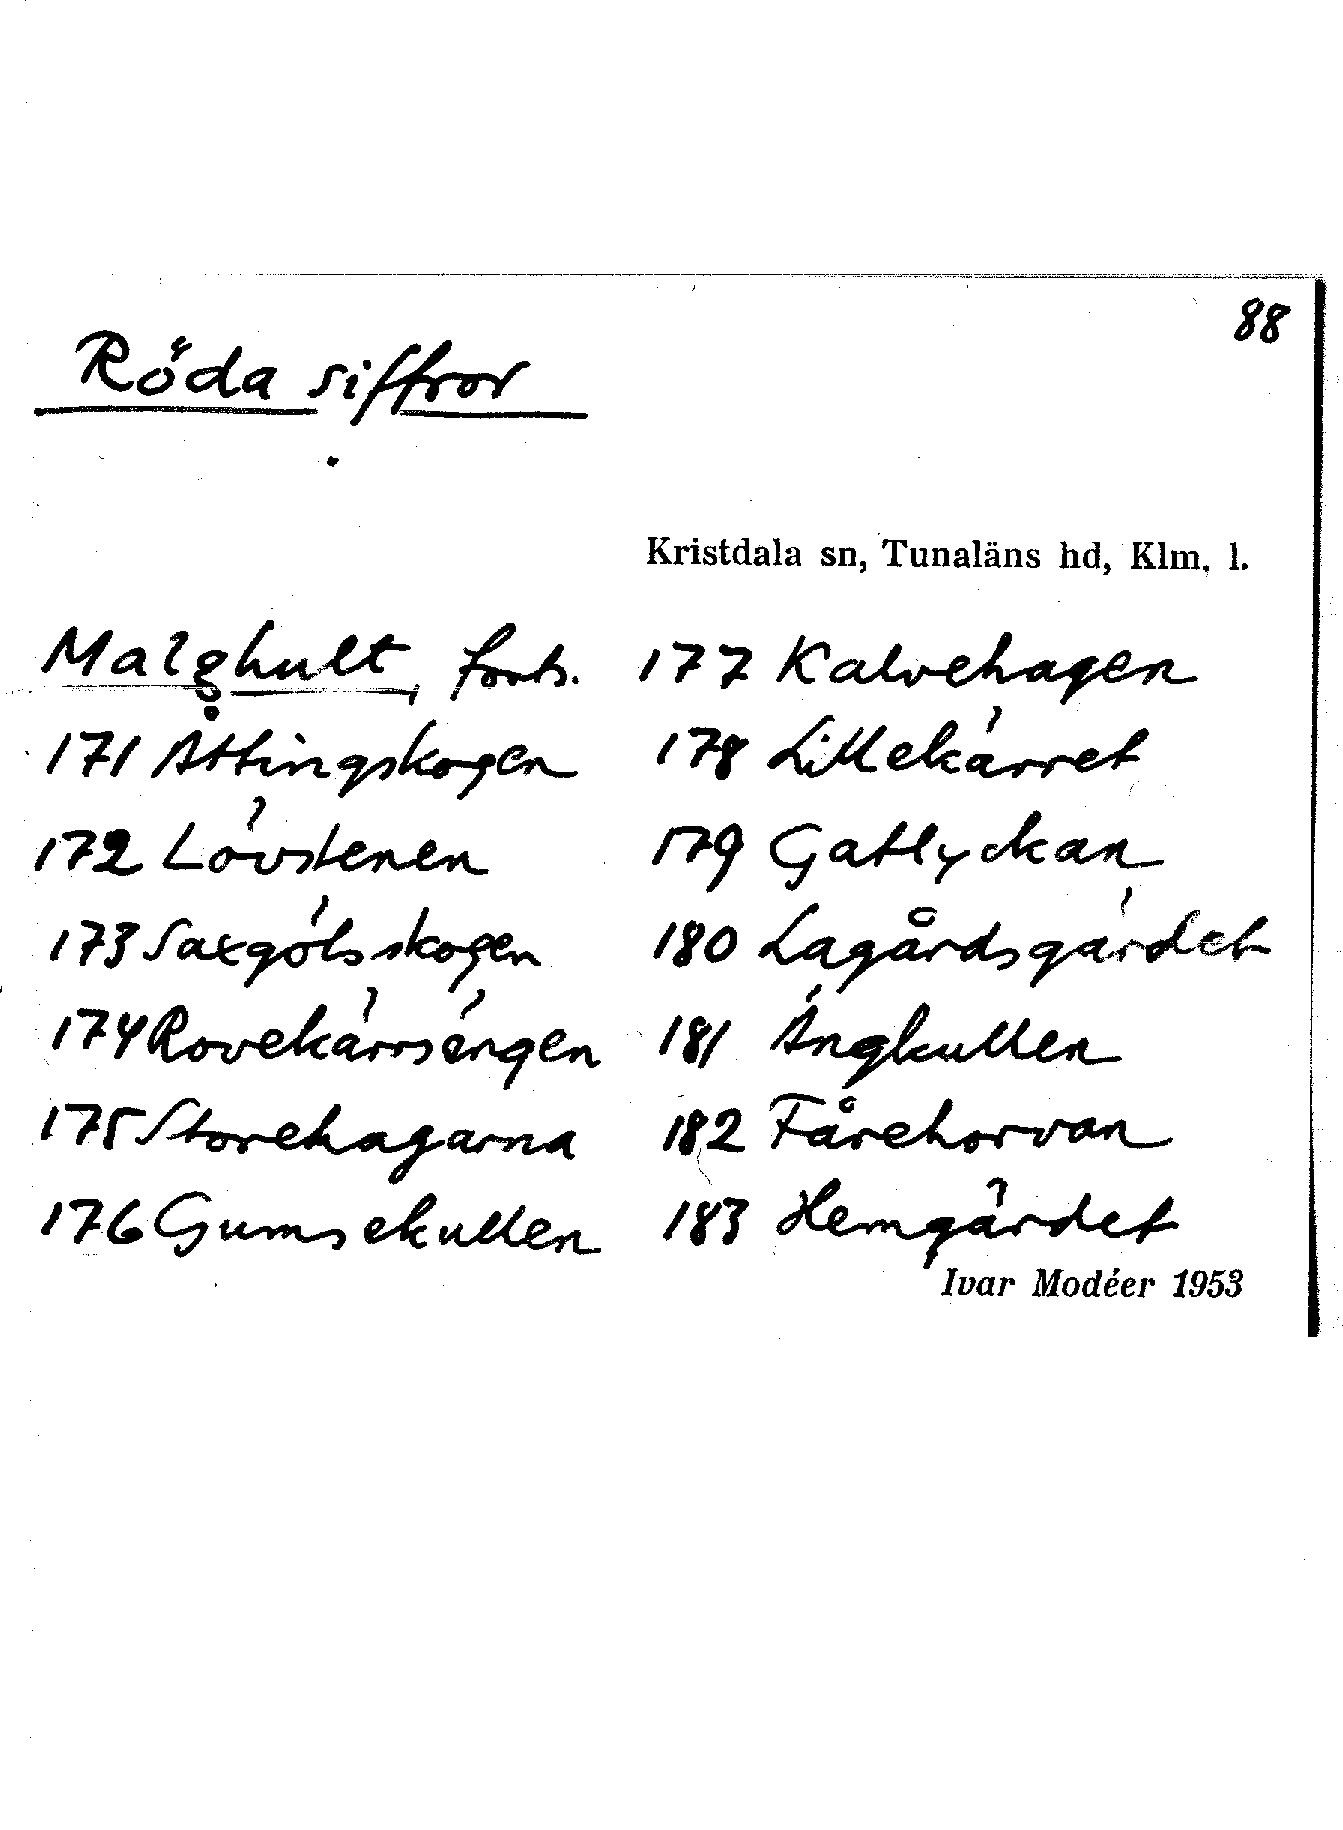 88
Röda siffror
Kristdala sn, Tunaläns hd, Klm. l.
Malghult, forts.
171 Åttingskogen
172 Lövstenen
173 Saxgölsskogen
174 Rovekärrsängen
175 Storehagarna
176 Gumsekullen
177 Kalvehagen
178 Lillekärret
179 Gatlyckan
180 Lagårdsgärdet
181 Ängkullen
182 Fårehorvan
183 Hemgärdet
Ivar Modéer 1953